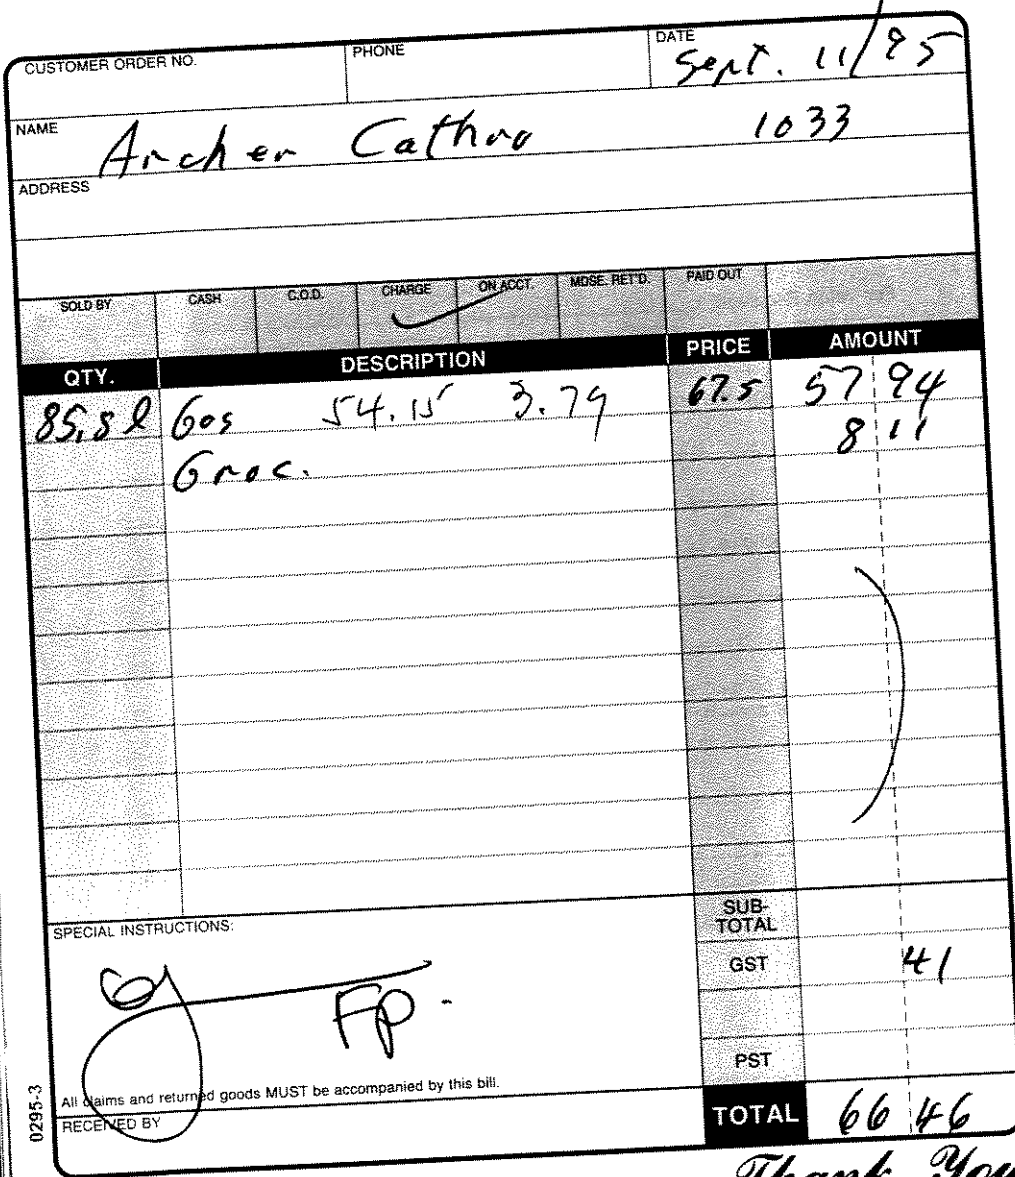 CUSTOMER ORDER NO. PHONE DATE Sept. 11/95
NAME Archer Cathro 1033
ADDRESS
SOLD BY CASH C.O.D. CHARGE ON ACCT. MDSE. RET'D. PAID OUT
QTY. DESCRIPTION PRICE AMOUNT
85.8 l Gas 54.15 3.79 67.5 57 94
Groc. 8 11
SPECIAL INSTRUCTIONS:
SUB-
TOTAL
GST 41
FP -
PST
All claims and returned goods MUST be accompanied by this bill.
RECEIVED BY
TOTAL 66 46
0295-3
Thank You